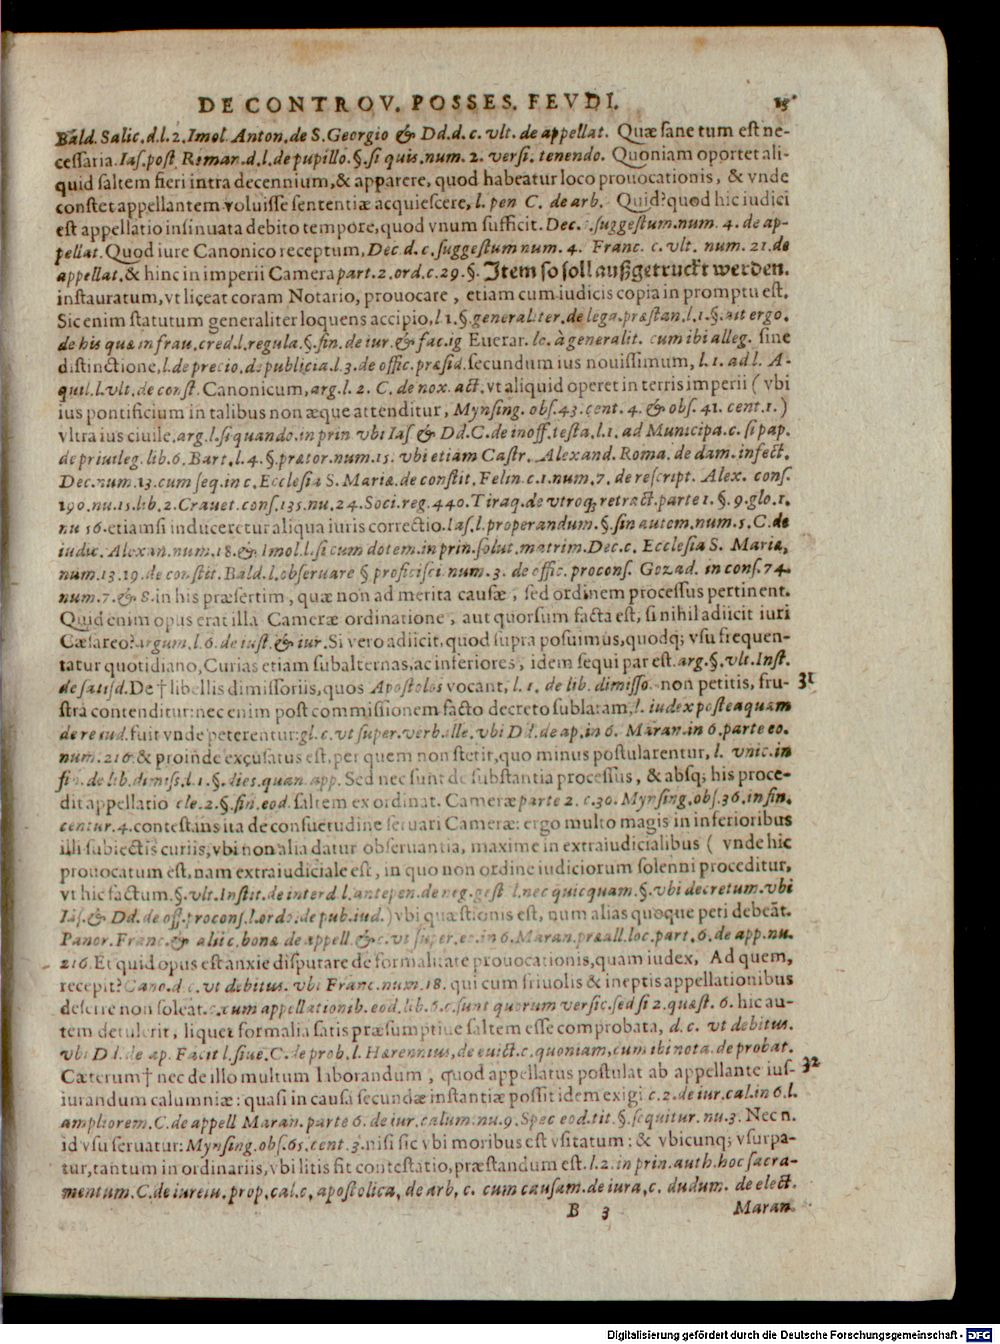 DE CONTROV. POSSES. FEVDI. 15
Bald. Salic. d. l. 2. Imol. Anton. de S. Georgio & Dd. d. c. vlt. de appellat. Quæ sane tum est ne-
cessaria. Ias. post Roman. d. l. de pupillo. §. si quis. num. 2. versi. tenendo. Quoniam oportet ali-
quid saltem fieri intra decennium, & apparere, quod habeatur loco prouocationis, & vnde
constet appellantem voluisse sententiæ acquiescere, l. pen C. de arb. Quid? quod hic iudici
est appellatio insinuata debito tempore, quod vnum sufficit. Dec. c. suggestum. num. 4. de ap-
pellat. Quod iure Canonico receptum, Dec. d. c. suggestum num. 4. Franc. c. vlt. num. 21. de
appellat. & hinc in imperii Camera part. 2. ord. c. 29. §. Item so soll außgetruckt werden.
instauratum, vt liceat coram Notario, prouocare, etiam cum iudicis copia in promptu est.
Sic enim statutum generaliter loquens accipio, l 1. §. generaliter. de lega. præstan. l. 1. §. ait ergo.
de his quæ in frau. cred. l. regula. §. fin. de iur. & fac. ig Euerar. lc. à generalit. cum ibi alleg. sine
distinctione, l. de precio. de publicia. l. 3. de offic. præsid. secundum ius nouissimum, l. 1. ad l. A-
quil. l. vlt. de const. Canonicum, arg. l. 2. C. de nox. act. vt aliquid operet in terris imperii ( vbi
ius pontificium in talibus non æque attenditur, Mynsing. obs. 43. cent. 4. & obs. 41. cent. 1. )
vltra ius ciuile. arg. l. si quando. in prin vbi Ias & Dd. C. de inoff. testa. l. 1. ad Municipa. c. si pap.
de priuileg. lib. 6. Bart. l. 4. §. prætor. num. 15. vbi etiam Castr. Alexand. Roma. de dam. infect.
Dec. num. 13. cum seq. in c. Ecclesia S. Mariæ. de constit. Felin. c. 1. num. 7. de rescript. Alex. cons.
190. nu. 15. lib. 2. Crauet. cons. 135. nu. 24. Soci. reg. 440. Tiraq. de vtroq; retract. parte 1. §. 9. glo. 1.
nu 16. etiamsi induceretur aliqua iuris correctio. Ias. l. properandum. §. sin autem. num. 5. C. de
iudic. Alexan. num. 18. & Imol. l. si cum dotem. in prin. solut. matrim. Dec. c. Ecclesia S. Mariæ,
num. 13. 19. de constit. Bald. l. obseruare § proficisci num. 3. de offic. procons. Gozad. in cons. 74.
num. 7. & 8. in his præsertim, quæ non ad merita causæ, sed ordinem processus pertinent.
Quid enim opus erat illa Cameræ ordinatione, aut quorsum facta est, si nihil adiicit iuri
Cæsareo? argum. l. 6. de iust. & iur. Si vero adiicit, quod supra posuimus, quodq; vsu frequen-
tatur quotidiano, Curias etiam subalternas, ac inferiores, idem sequi par est. arg. §. vlt. Inst.
de satisd. De † libellis dimissoriis, quos Apostolos vocant, l. 1. de lib. dimisso. non petitis, fru- 31
stra contenditur: nec enim post commissionem facto decreto sublatam, l. iudex posteaquam
de re iud. fuit vnde peterentur: gl. c. vt super. verb. ille. vbi Dd. de ap. in 6. Maran. in 6. parte eo.
num. 216. & proinde excusatus est, per quem non stetit, quo minus postularentur, l. vnic. in
fin. de lib. dimiss. l. 1. §. dies. quan. app. Sed nec sunt de substantia processus, & absq; his proce-
dit appellatio cle. 2. §. fin. eod. saltem ex ordinat. Cameræ parte 2. c. 30. Mynsing. obs. 36. in fin.
centur. 4. contestans ita de consuetudine seruari Cameræ: ergo multo magis in inferioribus
illi subiectis curiis, vbi non alia datur obseruantia, maxime in extraiudicialibus ( vnde hic
prouocatum est, nam extraiudiciale est, in quo non ordine iudiciorum solenni proceditur,
vt hic factum. §. vlt. Instit. de interd. l. antepen. de neg. gest l. nec quicquam. §. vbi decretum. vbi
Ias. & Dd. de off. procons. l. ordo. de pub. iud. ) vbi quæstionis est, num alias quoque peti debeāt.
Panor. Franc. & alii c. bonæ de appell. & c. vt super. eo. in 6. Maran. præall. loc. part. 6. de app. nu.
216. Et quid opus est anxie disputare de formalitate prouocationis, quam iudex, Ad quem,
recepit? Cano. d. c. vt debitus. vbi Franc. num. 18. qui cum friuolis & ineptis appellationibus
deferre non soleat. c. cum appellationib. eod. lib. 6. c. sunt quorum versic. sed si 2. quæst. 6. hic au-
tem detulerit, liquet formalia satis præsumptiue saltem esse comprobata, d. c. vt debitus.
vbi Dd. de ap. Facit l. siue. C. de prob. l. Herennius, de euict. c. quoniam, cum ibi nota. de probat.
Cæterum † nec de illo multum laborandum, quod appellatus postulat ab appellante ius- 32
iurandum calumniæ: quasi in causa secundæ instantiæ possit idem exigi c. 2. de iur. cal. in 6. l.
ampliorem. C. de appell Maran. parte 6. de iur. calum. nu. 9. Spec eod. tit §. sequitur. nu. 3. Nec n.
id vsu seruatur: Mynsing. obs. 65. cent. 3. nisi sic vbi moribus est vsitatum: & vbicunq; vsurpa-
tur, tantum in ordinariis, vbi litis fit contestatio, præstandum est. l. 2. in prin. auth. hoc sacra-
mentum. C. de iureiu. prop. cal. c, apostolica, de arb, c. cum causam. de iura, c. dudum. de elect.
B 3 Maran.
Digitalisierung gefördert durch die Deutsche Forschungsgemeinschaft - DFG